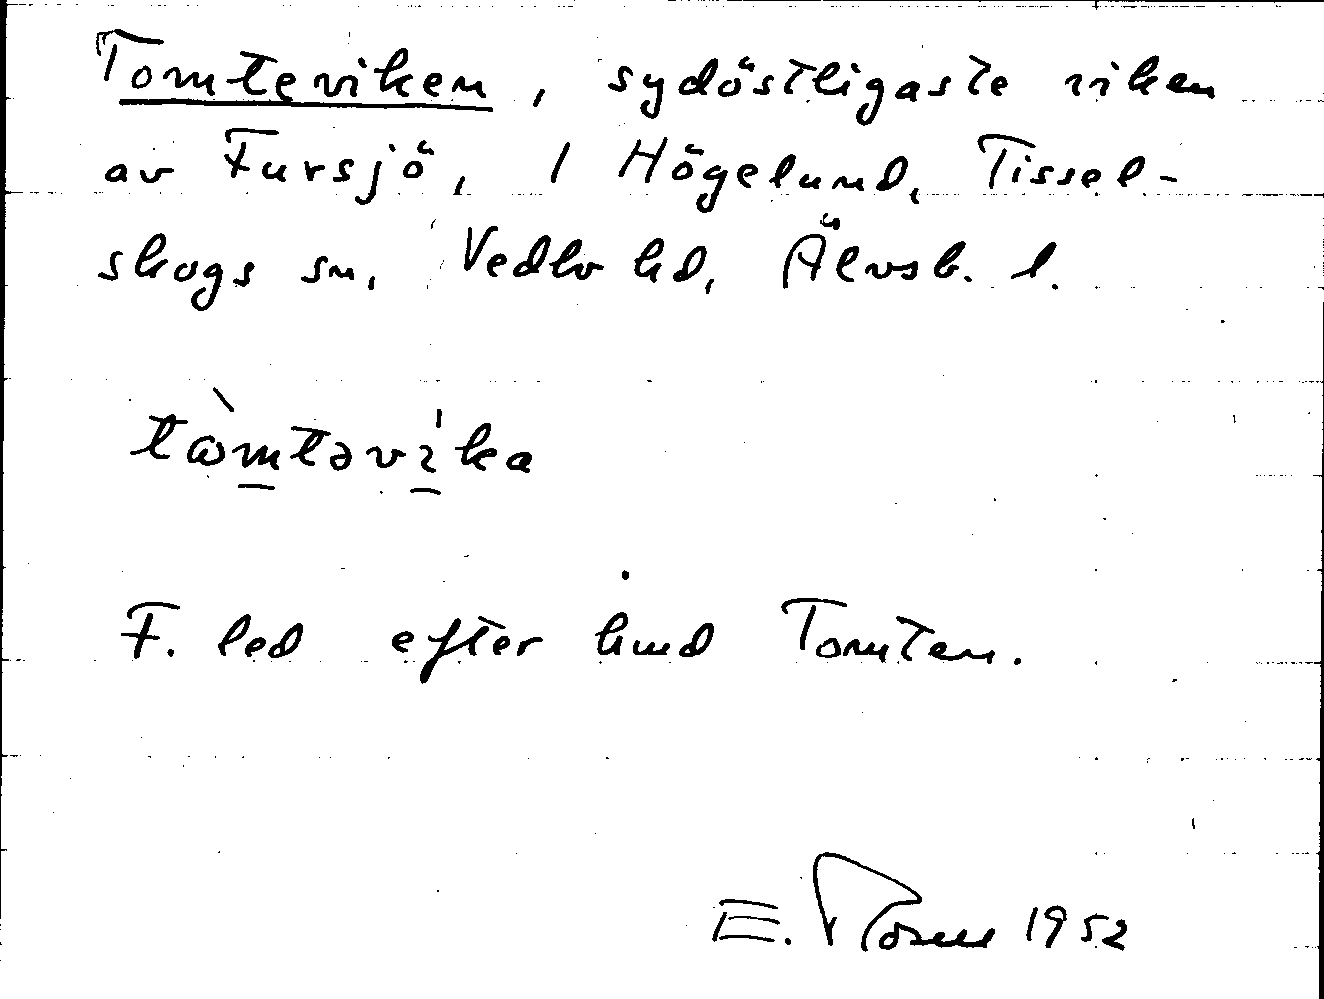 Tomteviken, sydöstligaste viken
av Fursjö, 1 Högelund, Tissel-
skogs sn, Vedbo hd, Älvsb. l.
tòmtəvi̱ka
F. led efter hmd Tomten.
E. Rosell 1952